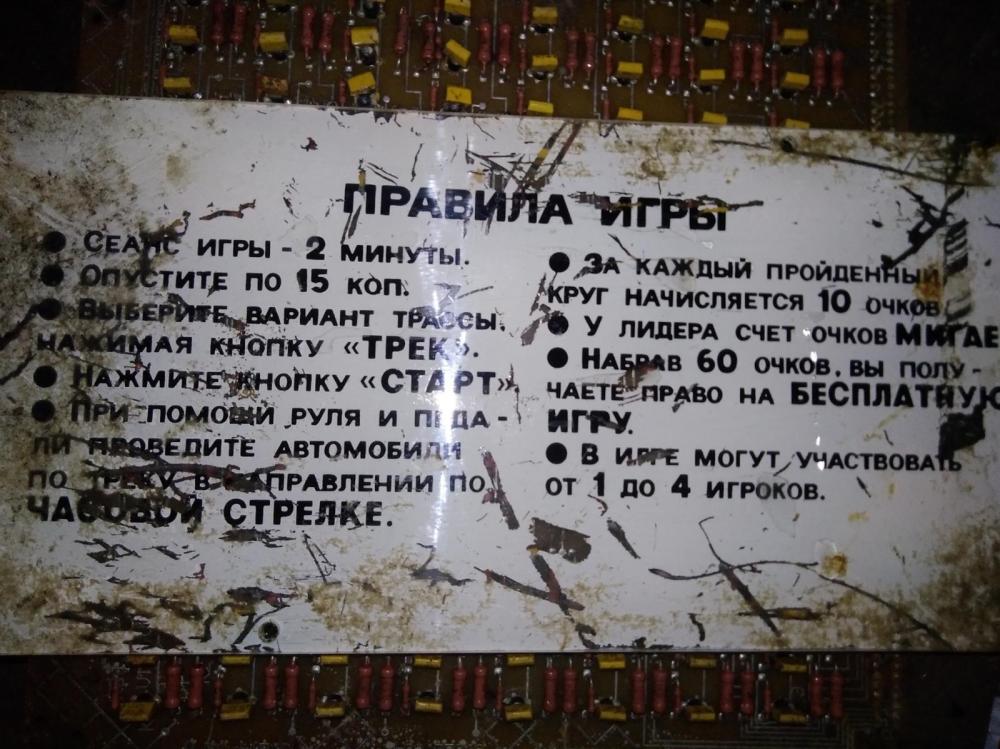 ПРАВИЛА ИГРЫ
● СЕАНС ИГРЫ - 2 МИНУТЫ.
● ОПУСТИТЕ ПО 15 КОП.
● ВЫБЕРИТЕ ВАРИАНТ ТРАССЫ,
НАЖИМАЯ КНОПКУ «ТРЕК».
● НАЖМИТЕ КНОПКУ «СТАРТ»,
● ПРИ ПОМОЩИ РУЛЯ И ПЕДА-
ЛИ ПРОВЕДИТЕ АВТОМОБИЛИ
ПО ТРЕКУ В НАПРАВЛЕНИИ ПО
ЧАСОВОЙ СТРЕЛКЕ.
● ЗА КАЖДЫЙ ПРОЙДЕННЫЙ
КРУГ НАЧИСЛЯЕТСЯ 10 ОЧКОВ
● У ЛИДЕРА СЧЕТ ОЧКОВ МИГАЕ
● НАБРАВ 60 ОЧКОВ, ВЫ ПОЛУ-
ЧАЕТЕ ПРАВО НА БЕСПЛАТНУЮ
ИГРУ.
● В ИГРЕ МОГУТ УЧАСТВОВАТЬ
ОТ 1 ДО 4 ИГРОКОВ.